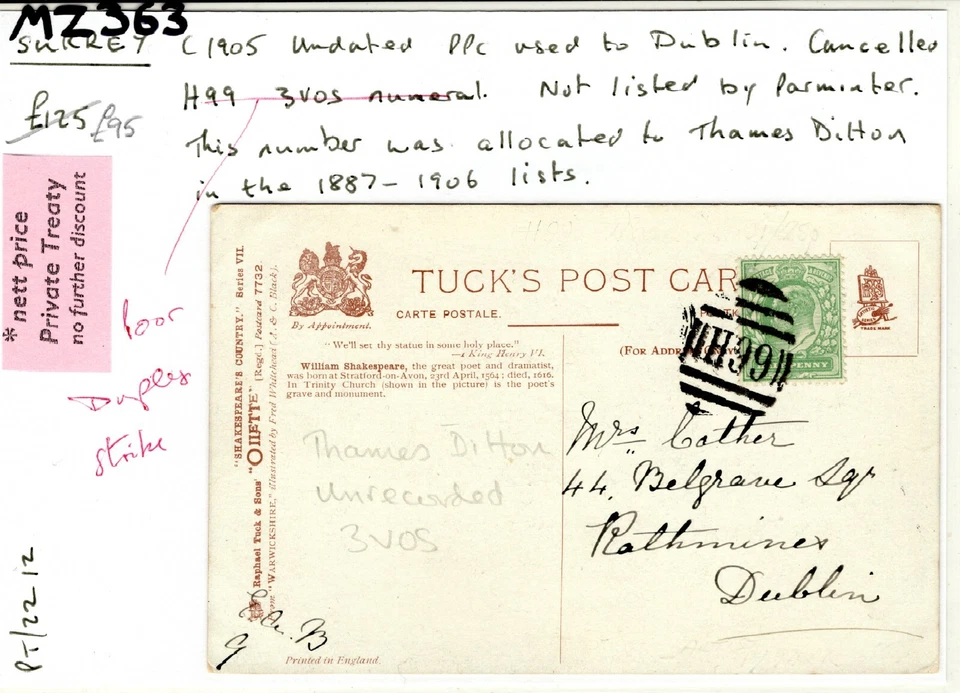 MZ363
SURREY C1905 Undated PPC used to Dublin. Cancelled
H99 3VOS numeral. Not listed by Parminter.
£125 £95
This number was allocated to Thames Ditton
in the 1887-1906 lists.
*nett price
Private Treaty
no further discount
Poor
Duplex
strike
PT/22 12
"SHAKESPEARE'S COUNTRY." Series VII.
Raphael Tuck & Sons' "OILETTE" [Regd.] Postcard 7732.
From "WARWICKSHIRE," illustrated by Fred Whitehead (A. & C. Black).
By Appointment.
TUCK'S POST CAR
CARTE POSTALE.
"We'll set thy statue in some holy place."
—1 King Henry VI.
William Shakespeare, the great poet and dramatist,
was born at Stratford-on-Avon, 23rd April, 1564; died, 1616.
In Trinity Church (shown in the picture) is the poet's
grave and monument.
(FOR ADDRESS ONLY)
H99
PENNY
TRADE MARK
Thames Ditton
Unrecorded
3VOS
Mrs Cother
44, Belgrave Sqr
Rathmines
Dublin
Printed in England.